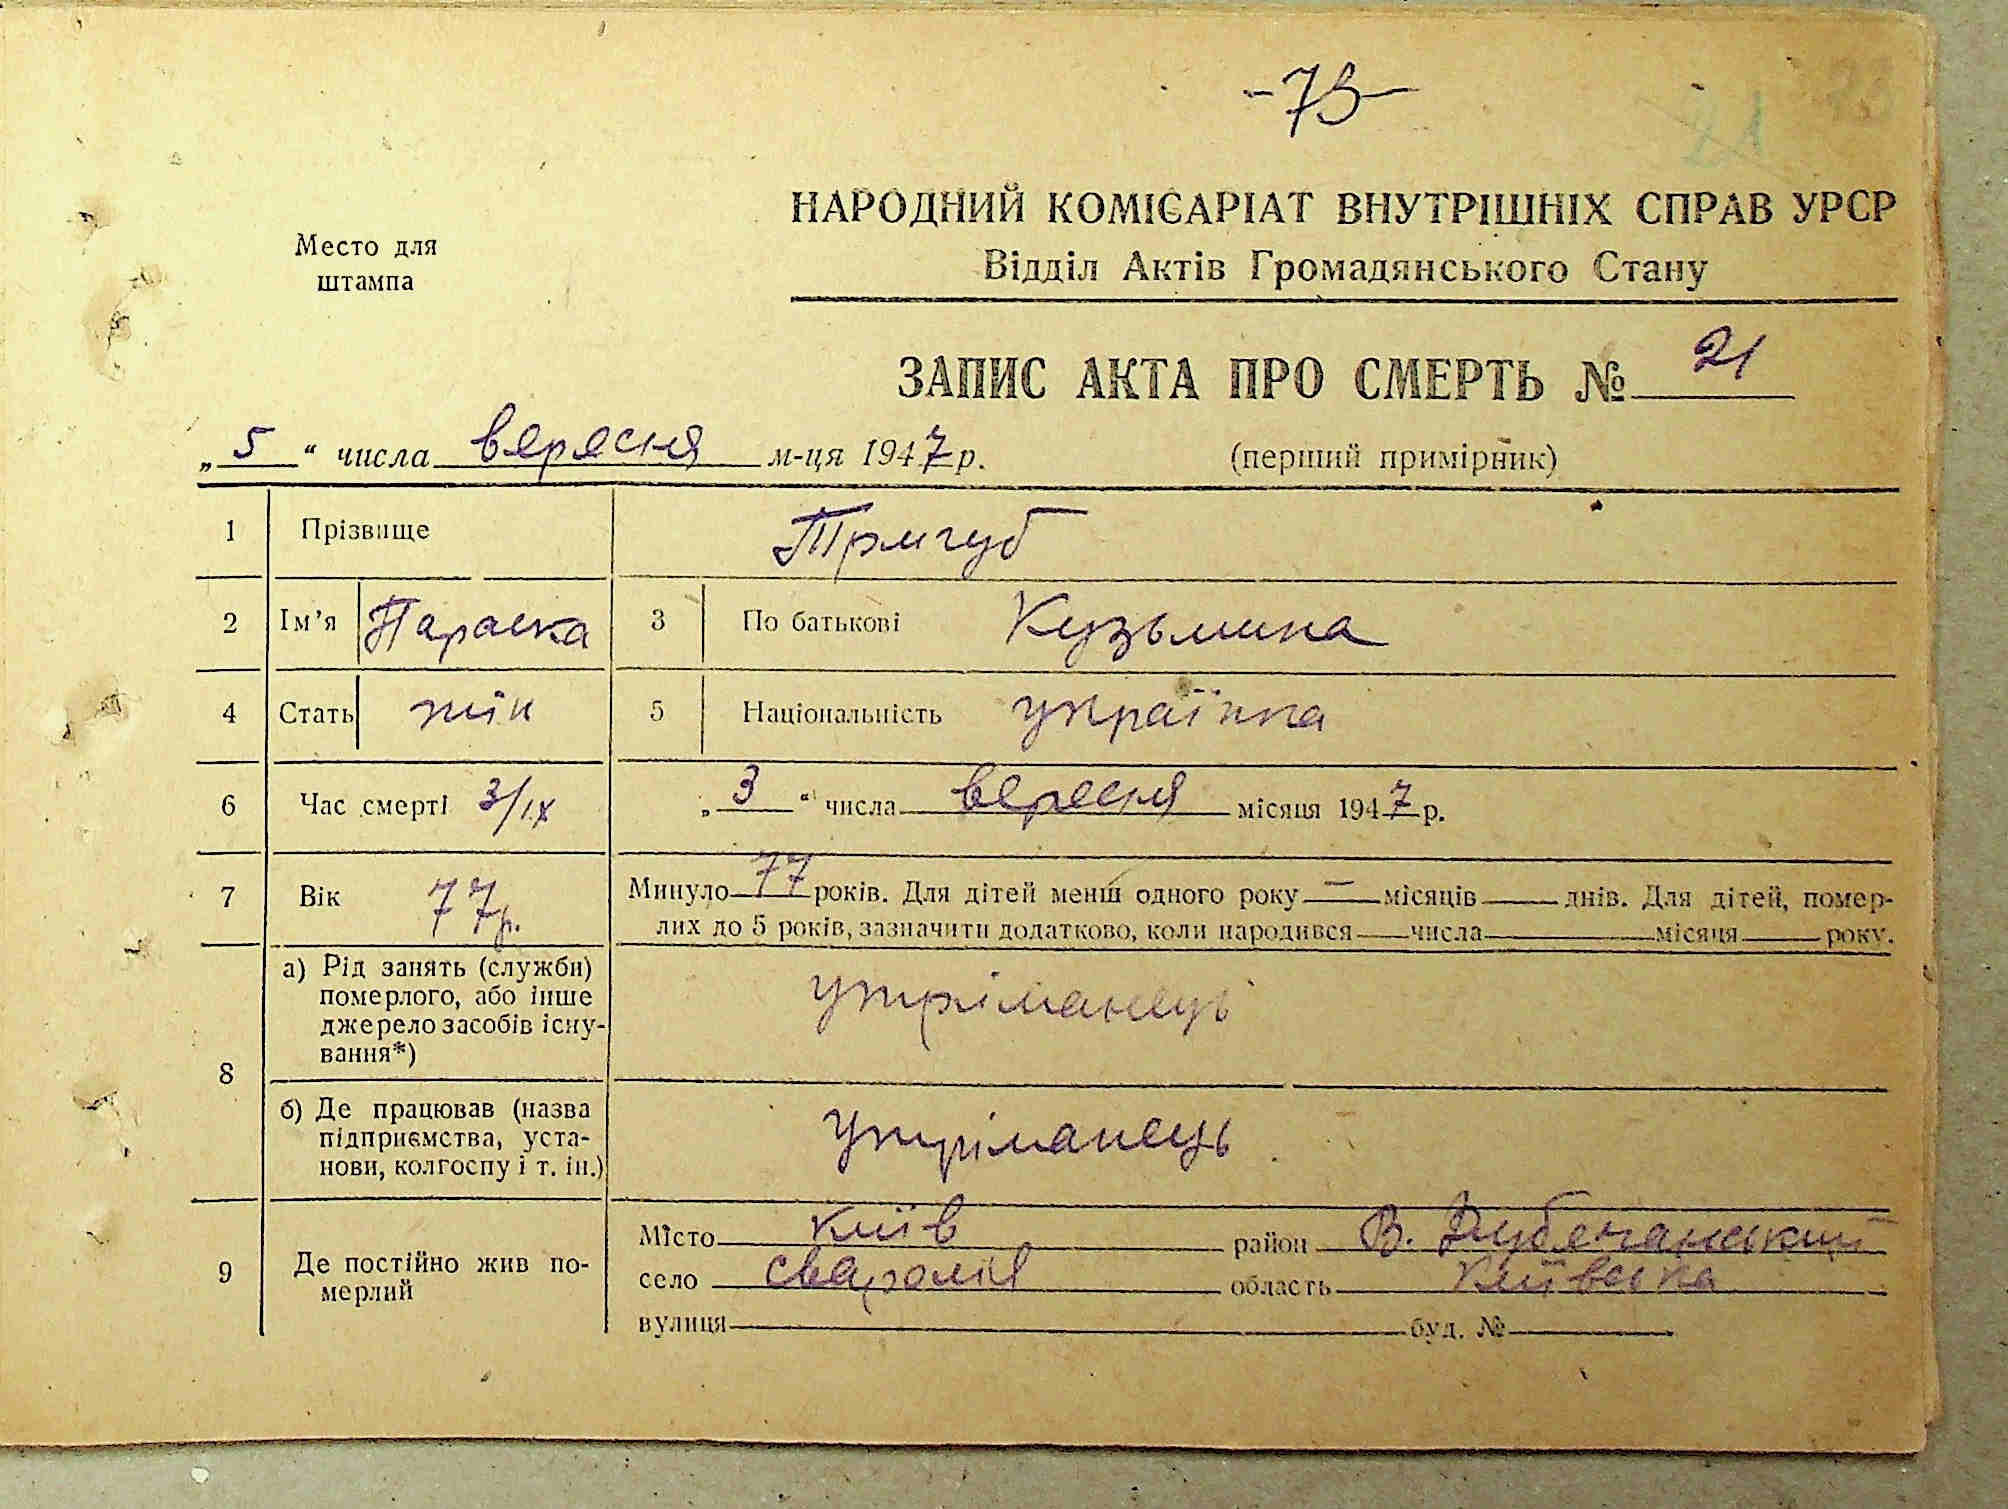 -73-
21
НАРОДНИЙ КОМІСАРІАТ ВНУТРІШНІХ СПРАВ УРСР
Відділ Актів Громадянського Стану
Место для
штампа
ЗАПИС АКТА ПРО СМЕРТЬ № 21
„5“ числа вересня м-ця 1947 р. (перший примірник)
1 Прізвище Тригуб
2 Ім’я Параска 3 По батькові Кузьмина
4 Стать жін 5 Національність українка
6 Час смерті 3/IX „3“ числа вересня місяця 1947 р.
7 Вік 77р. Минуло 77 років. Для дітей менш одного року — місяців днів. Для дітей, помер-
лих до 5 років, зазначити додатково, коли народився числа місяця року.
8 а) Рід занять (служби)
померлого, або інше
джерело засобів існу-
вання*) утріманець
б) Де працював (назва
підприємства, уста-
нови, колгоспу і т. ін.) утріманець
9 Де постійно жив по-
мерлий
Місто Київ район В. Дубечанський
село Сваромія область Київська
вулиця буд. №